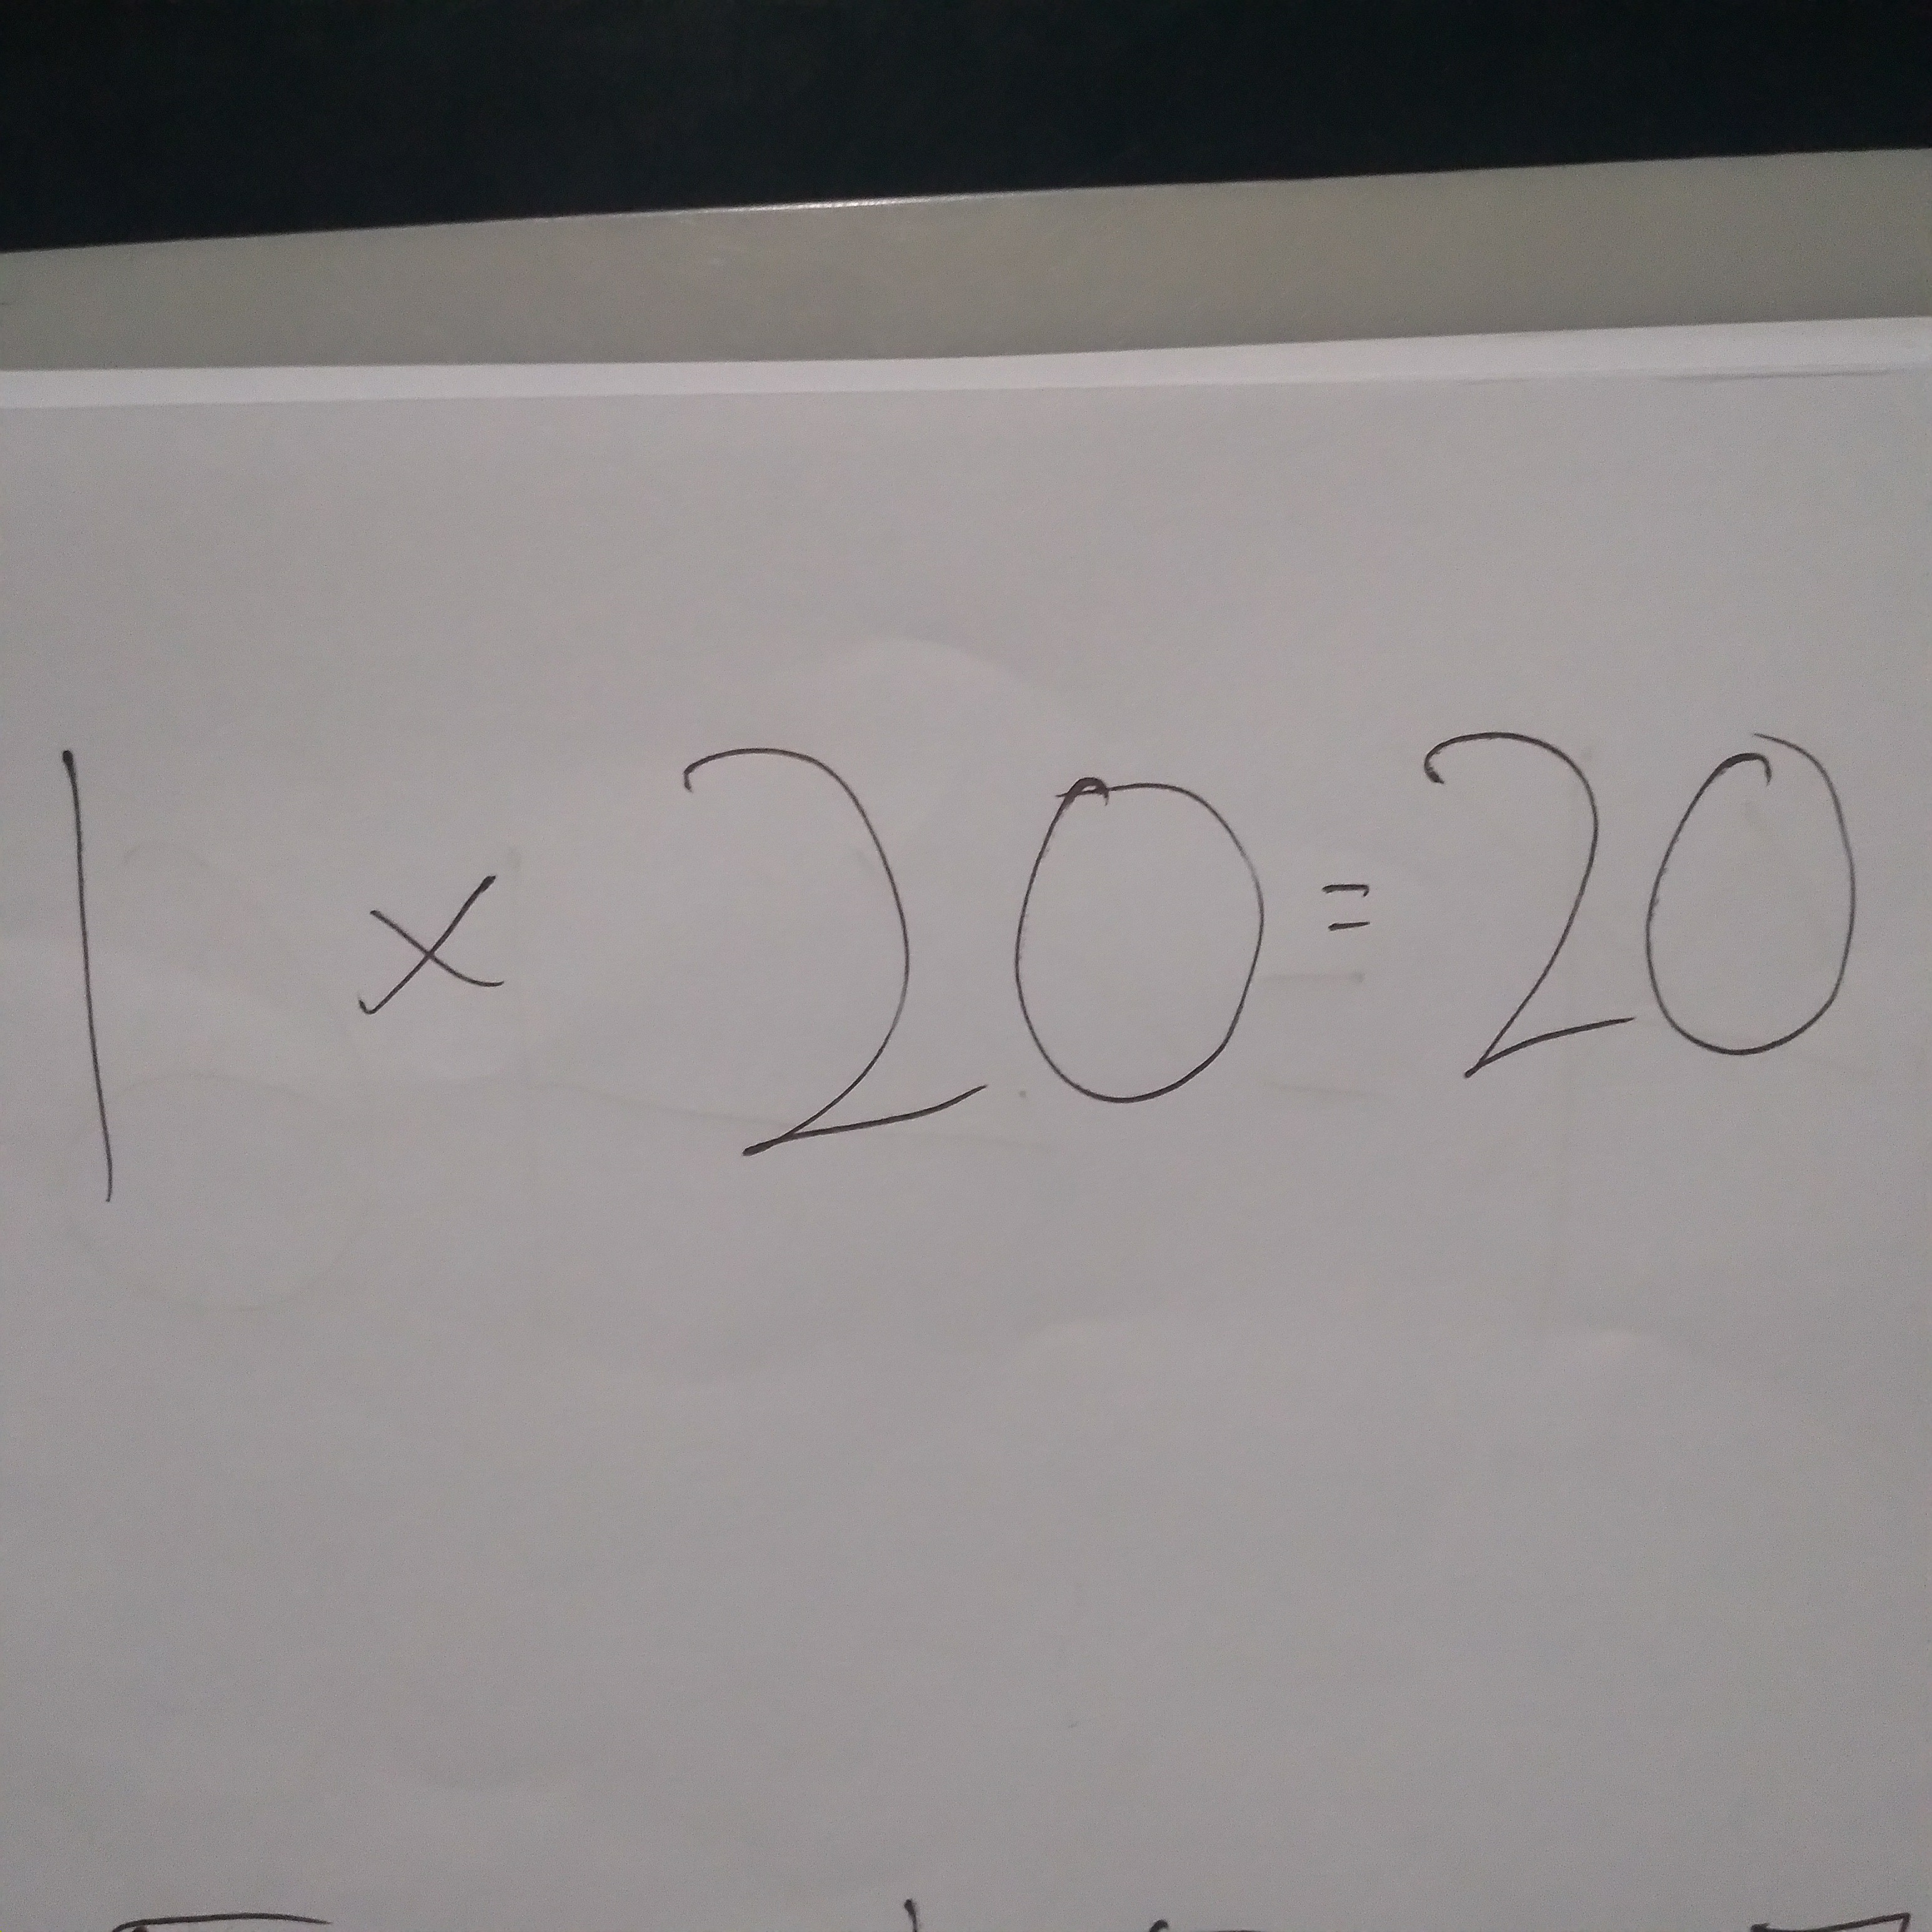 1 × 20 = 20